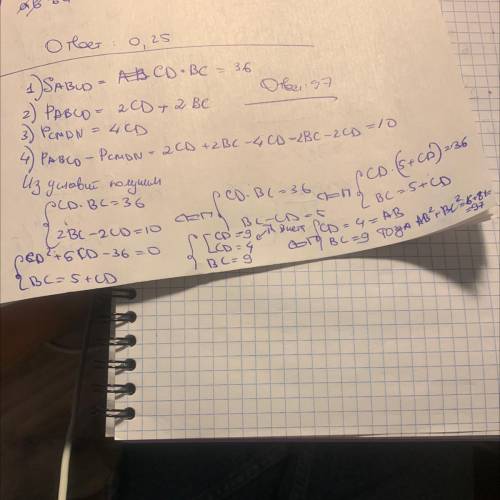 Ответ: 0,25
1) SABCD = CD · BC = 36
Ответ: 97
2) PABCD = 2CD + 2BC
3) PCMDN = 4CD
4) PABCD − PCMDN = 2CD + 2BC − 4CD = 2BC − 2CD = 10
Из условий получим
{ CD · BC = 36
2BC − 2CD = 10
<=> { CD · BC = 36
BC − CD = 5
<=> { CD · (5 + CD) = 36
BC = 5 + CD
{ CD² + 5CD − 36 = 0
BC = 5 + CD
{ [ CD = −9
CD = 4
BC = 9
<=> { CD = 4 = AB
BC = 9 тогда AB² + BC² =
= 97